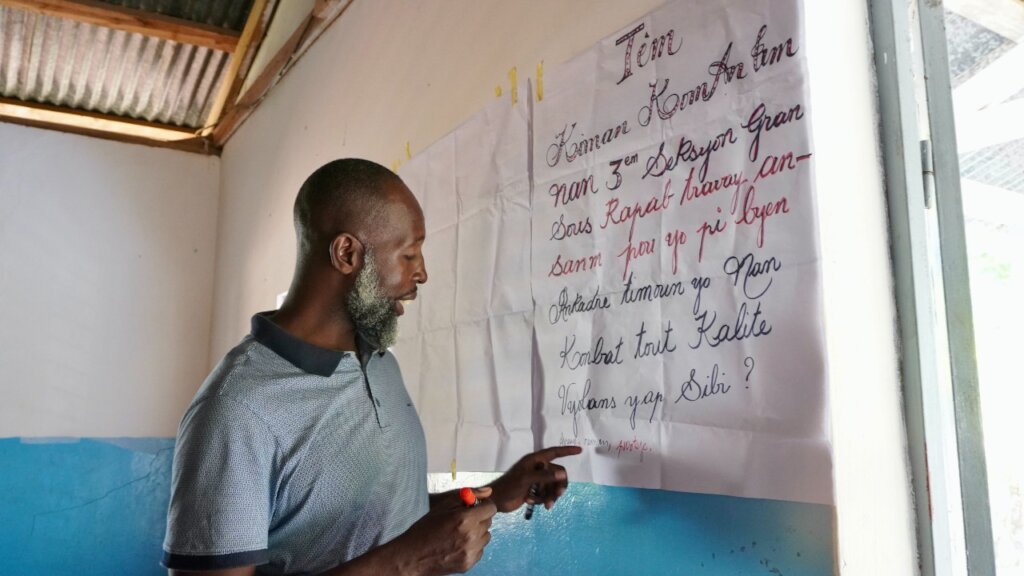 Tèm
Kiman KomAn tim
nan 3em Seksyon Gran
Sous Rapab travay an-
sanm pou yo pi byen
Ankadre timoun yo Nan
Konbat tout Kalite
Vyolans yap Sibi ?